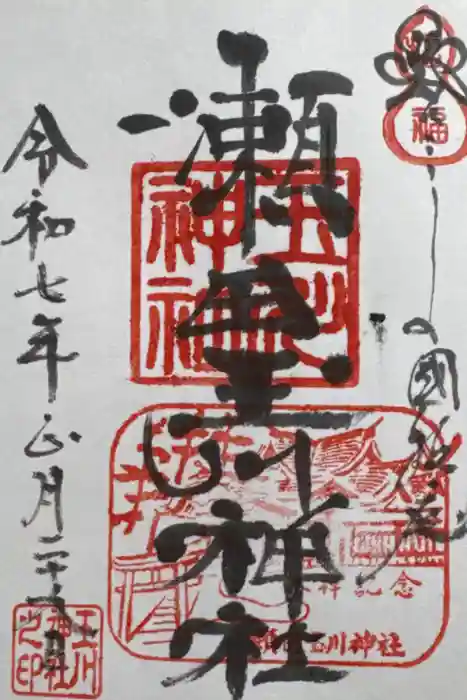 福
瀬田玉川神社
玉川神社
拝記念
瀬田玉川神社
令和七年正月二十
玉川神社之印